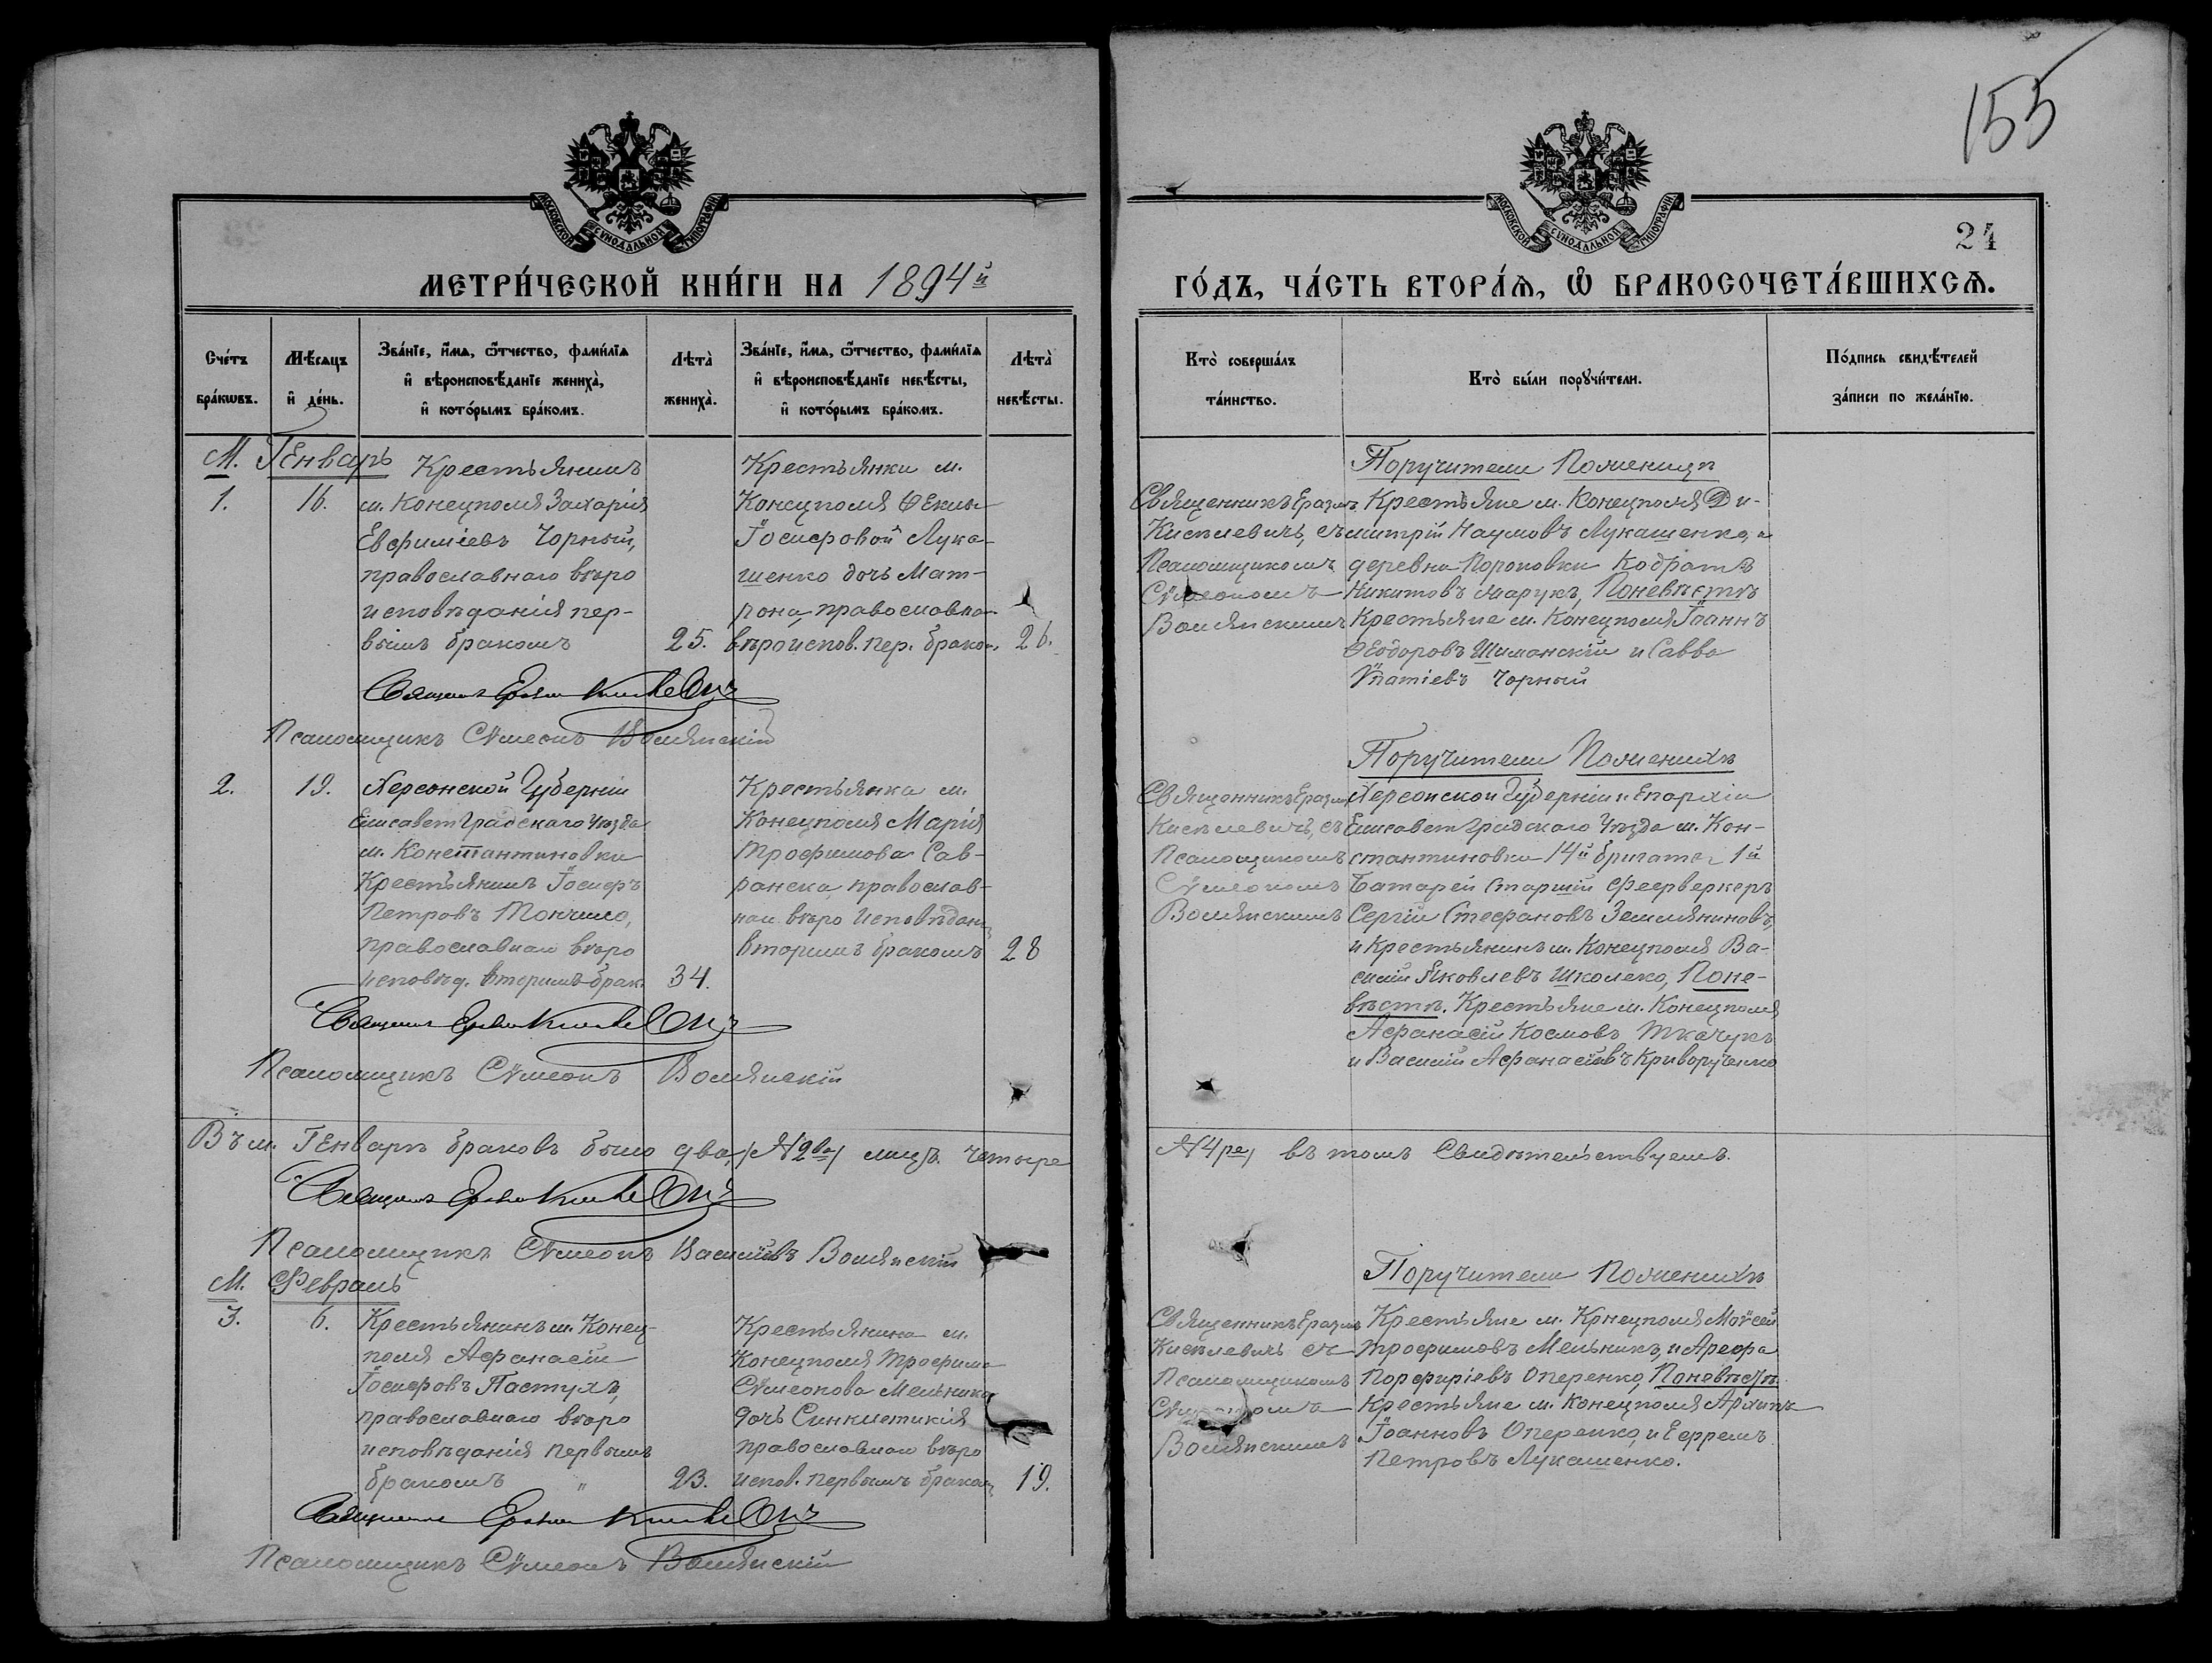 155
24
МОСКОВСКОЙ СѴНОДАЛЬНОЙ ТИПОГРАФІИ
МОСКОВСКОЙ СѴНОДАЛЬНОЙ ТИПОГРАФІИ
МЕТРИ́ЧЕСКОЙ КНИ́ГИ НА 1894й
ГО́ДЪ, ЧА́СТЬ ВТОРА́Я, Ѽ БРАКОСОЧЕТА́ВШИХСЯ.
Сче́тъ бра́кѡвъ.
Мѣ́сяцъ и҆ де́нь.
Зва́нїе, и҆́мя, ѻ҆́тчество, фами́лїя
и҆ вѣроисповѣ́данїе жениха̀,
и҆ кото́рымъ бра́комъ.
Лѣта̀ жениха̀.
Зва́нїе, и҆́мя, ѻ҆́тчество, фами́лїя
и҆ вѣроисповѣ́данїе невѣ́сты,
и҆ кото́рымъ бра́комъ.
Лѣта̀ невѣ́сты.
Кто̀ соверша́лъ та́инство.
Кто̀ бы́ли порꙋчи́тели.
По́дпись свидѣ́телей за́писи по жела́нїю.
М. Генварь
1.
16.
Крестьянинъ
м. Конецполя Захарія
Евфиміевъ Чорный,
православнаго вѣро
исповѣданія пер-
вымъ бракомъ
25.
Крестьянки м.
Конецполя Ѳеклы
Іосифовой Лука-
шенко дочь Мат-
рона, православна-
вѣроиспов. пер. браком.
26.
Священникъ Еразмъ
Киселевичъ, съ
Псаломщикомъ
Сѵмеономъ
Волянскимъ
Поручители По женихѣ
Крестьяне м. Конецполя Ди-
митрій Наумовъ Лукашенко, и
деревни Пороховки Кодратъ
Никитовъ Марукъ, По невѣстѣ
Крестьяне м. Конецполя Іоаннъ
Ѳеодоровъ Шиманскій и Савва
Ѵпатіевъ Чорный
Псаломщикъ Сѵмеонъ Волянскій
2.
19.
Херсонской Губерніи
Елисаветградскаго Уѣзда
м. Константиновки
Крестьянинъ Іосифъ
Петровъ
православнаго вѣро
исповѣд. вторымъ брак.
34.
Крестьянка м.
Конецполя Марія
Трофимова Сав-
ранска, православ-
наго вѣро исповѣдан.
вторымъ бракомъ
28
Священникъ Еразмъ
Киселевичъ, съ
Псаломщикомъ
Сѵмеономъ
Волянскимъ
Поручители По женихѣ
Херсонской Губерніи и Епархіи
Елисаветградскаго Уѣзда м. Кон-
стантиновки 14й бригаты 1й
Батареи Старшій Феерверкеръ
Сергій Стефановъ Землянниновъ,
и Крестьянинъ м. Конецполя Ва-
силій Яковлевъ Школеко, По не-
вѣстѣ. Крестьяне м. Конецполя
Афанасій Космовъ Ткачукъ
и Василій Афанасіевъ Криворученко
Псаломщикъ Сѵмеонъ Волянскій
Въ м. Генварѣ браковъ было два, /№ 2ва/ лицъ. четыре
№ 4ре, въ томъ Свидѣтельствуемъ.
Псаломщикъ Сѵмеонъ Василіевъ Волянскій
М. Февраль
3.
6.
Крестьянинъ м. Конец-
поля Афанасій
Іосифовъ Пастухъ,
православнаго вѣро
исповѣданія первымъ
бракомъ
23.
Крестьянина м.
Конецполя Трофима
Сѵмеонова Мельника
дочь Синклитикія
православнаго вѣро
испов. первымъ браком
19.
Священникъ Еразмъ
Киселевичъ съ
Псаломщикомъ
Сѵмеономъ
Волянскимъ
Поручители По женихѣ
Крестьяне м. Конецполя Моѵсей
Трофимовъ Мельникъ, и Арефа
Порфиріевъ Оперенко, По невѣстѣ.
Крестьяне м. Конецполя Архипъ
Іоанновъ Оперенко, и Ефремъ
Петровъ Лукашенко.
Псаломщикъ Сѵмеонъ Волянскій